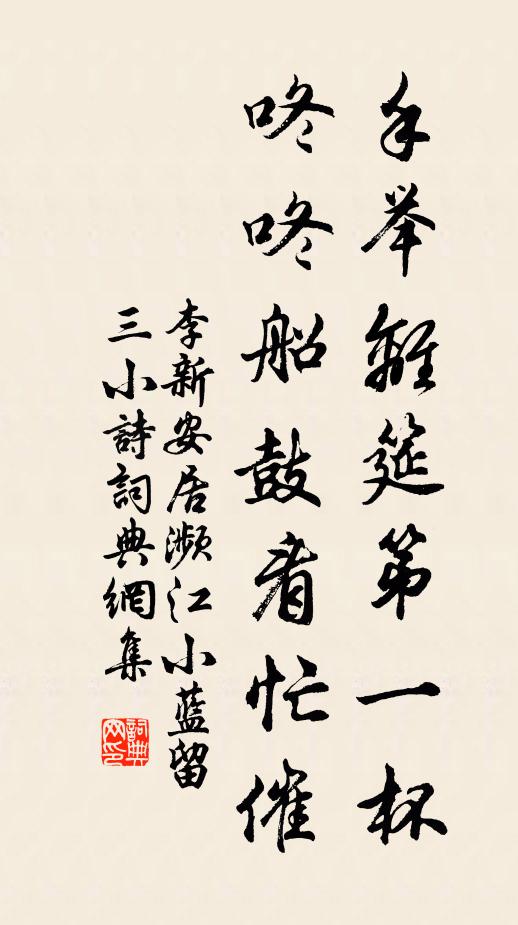 手举離筵第一杯
咚咚船鼓看忙催
李新安居瀕江小藍留
三小詩詞典網集
詞典
网印